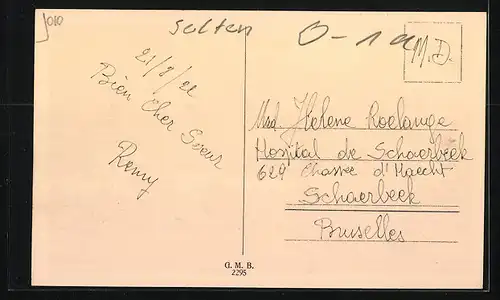 J010
selten
0-1a
M.D.
21/8/22
Bien Cher Soeur
Remy
Mad Helene Roelange
Hospital de Schaerbeek
629 Chassee d'Haecht
Schaerbeek
Bruselles
G. M. B.
2295